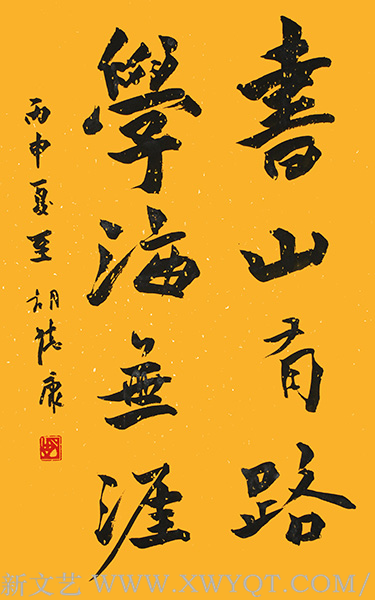 書山有路
學海無涯
丙申夏至 胡德康
新文艺 WWW.XWYQT.COM/